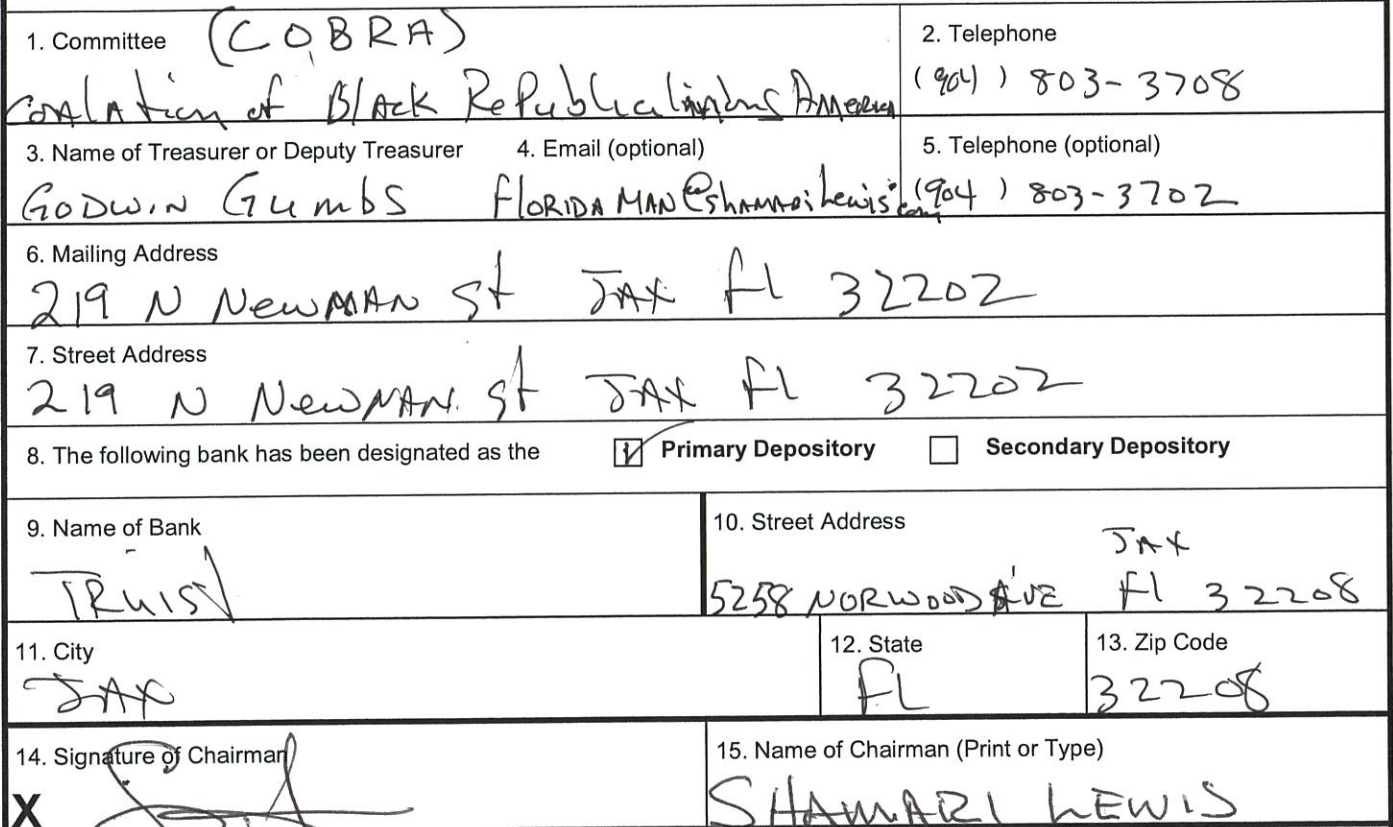 1. Committee (COBRA)
2. Telephone
Coalation of Black Republicans America
(904) 803-3708
3. Name of Treasurer or Deputy Treasurer 4. Email (optional)
5. Telephone (optional)
GODWIN Gumbs FLORIDA MAN@shamariLewis.com
(904) 803-3702
6. Mailing Address
219 N NewMAN St JAX fl 32202
7. Street Address
219 N NewMAN. St JAX fl 32202
8. The following bank has been designated as the Primary Depository Secondary Depository
9. Name of Bank
TRUIST
10. Street Address
JAX
5258 NORWOOD AVE Fl 32208
11. City
JAX
12. State
FL
13. Zip Code
32208
14. Signature of Chairman
X
15. Name of Chairman (Print or Type)
SHAMARI LEWIS